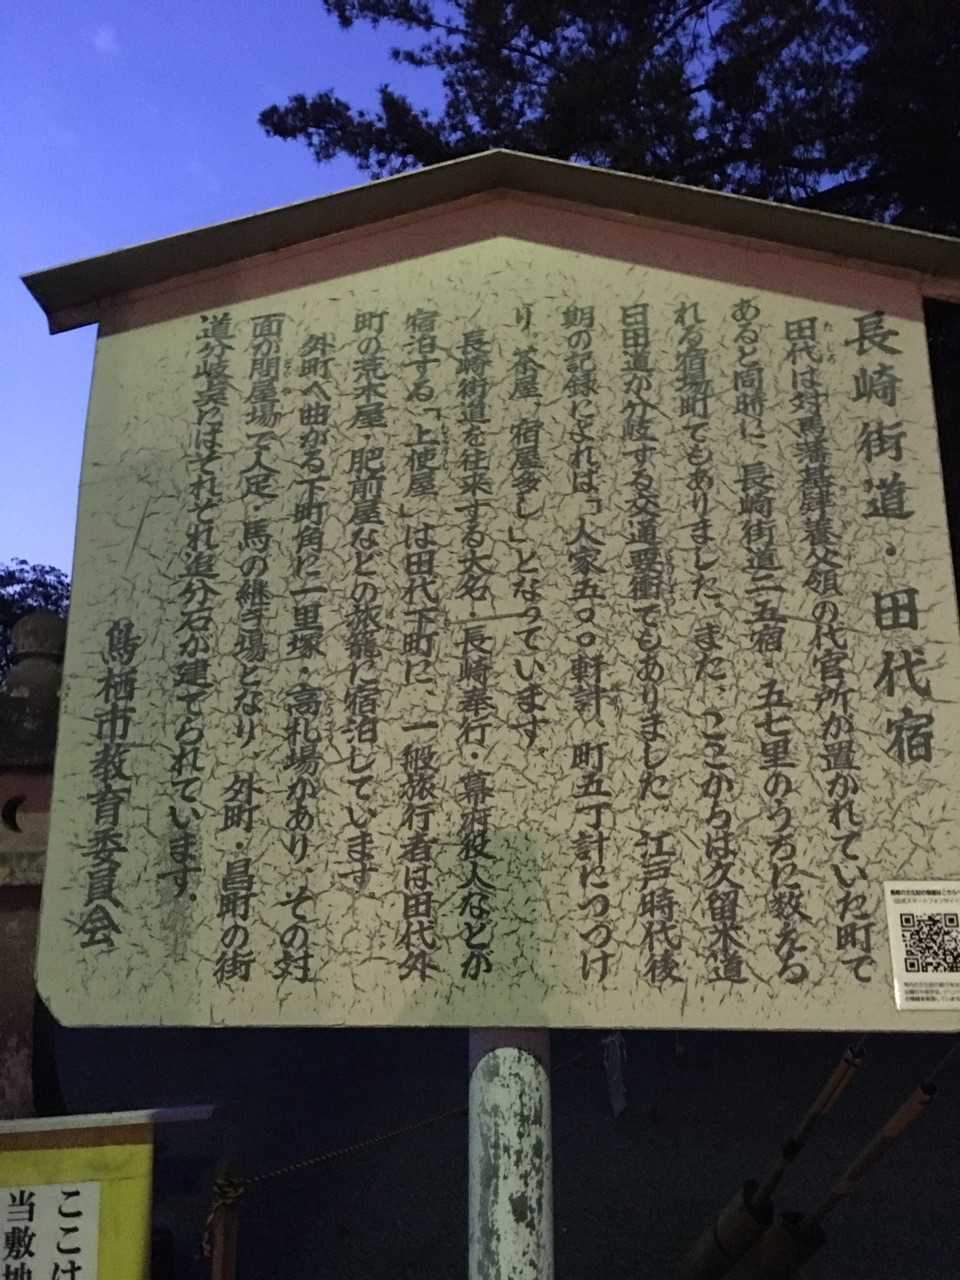 長崎街道・田代宿
たじろ
田代は対馬藩基肄養父領の代官所が置かれていた町で
あると同時に、長崎街道二五宿・五七里のうちに数えら
れる宿場町でもありました。また、ここからは久留米道
日田道が分岐する交通要衝でもありました。江戸時代後
期の記録によれば「人家五〇〇軒計、町五丁計につづけ
り。茶屋、宿屋多し」となっています。
長崎街道を往来する大名・長崎奉行・幕府役人などが
宿泊する「上使屋」は田代下町に、一般旅行者は田代外
町の荒木屋・肥前屋などの旅籠に宿泊しています。
外町へ曲がる下町角に一里塚・高札場があり、その対
面が問屋場で人足・馬の継ぎ場となり、外町・昌町の街
道分岐点にはそれぞれ追分石が建てられています。
鳥栖市教育委員会
ここは
当敷地